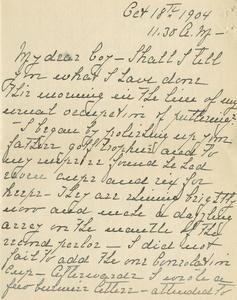 Oct 18th 1904
11.30 A.M-
My dear boy - Shall I tell
you what I have done
this morning in the line of my
usual occupation of puttering?
I began by polishing up your
father's golf trophies and to
my surprise found he had
seven cups and six for
keeps - They are shining brightly
now and make a dazzling
array on the mantle of the
second parlor - I did not
fail to add the one Consolation
Cup - Afterwards I wrote a
few business letters - attended to